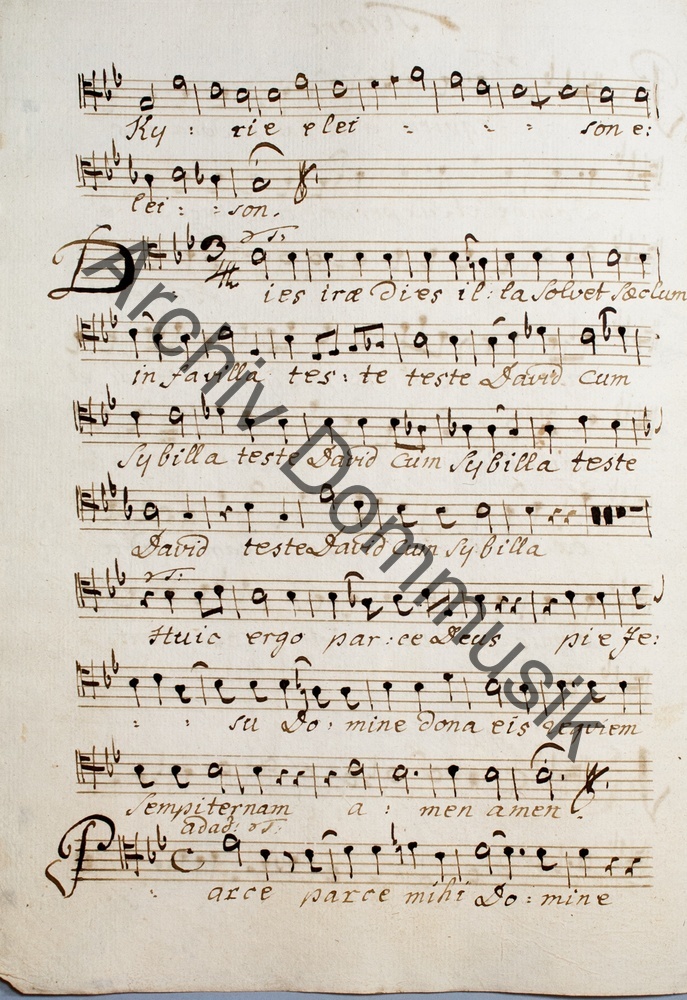 Ky : rie elei : : : son e:
lei : : son.
Dies iræ Dies il : la Solvet Sæclum
in favilla tes : te teste David Cum
Sybilla teste David Cum Sybilla teste
David teste David Cum Sybilla
Huic ergo par : ce Deus pie Je:
: : su Do : mine dona eis requiem
Sempiternam a : men amen.
adag:
Parce parce mihi Do : mine
Archiv Dommusik